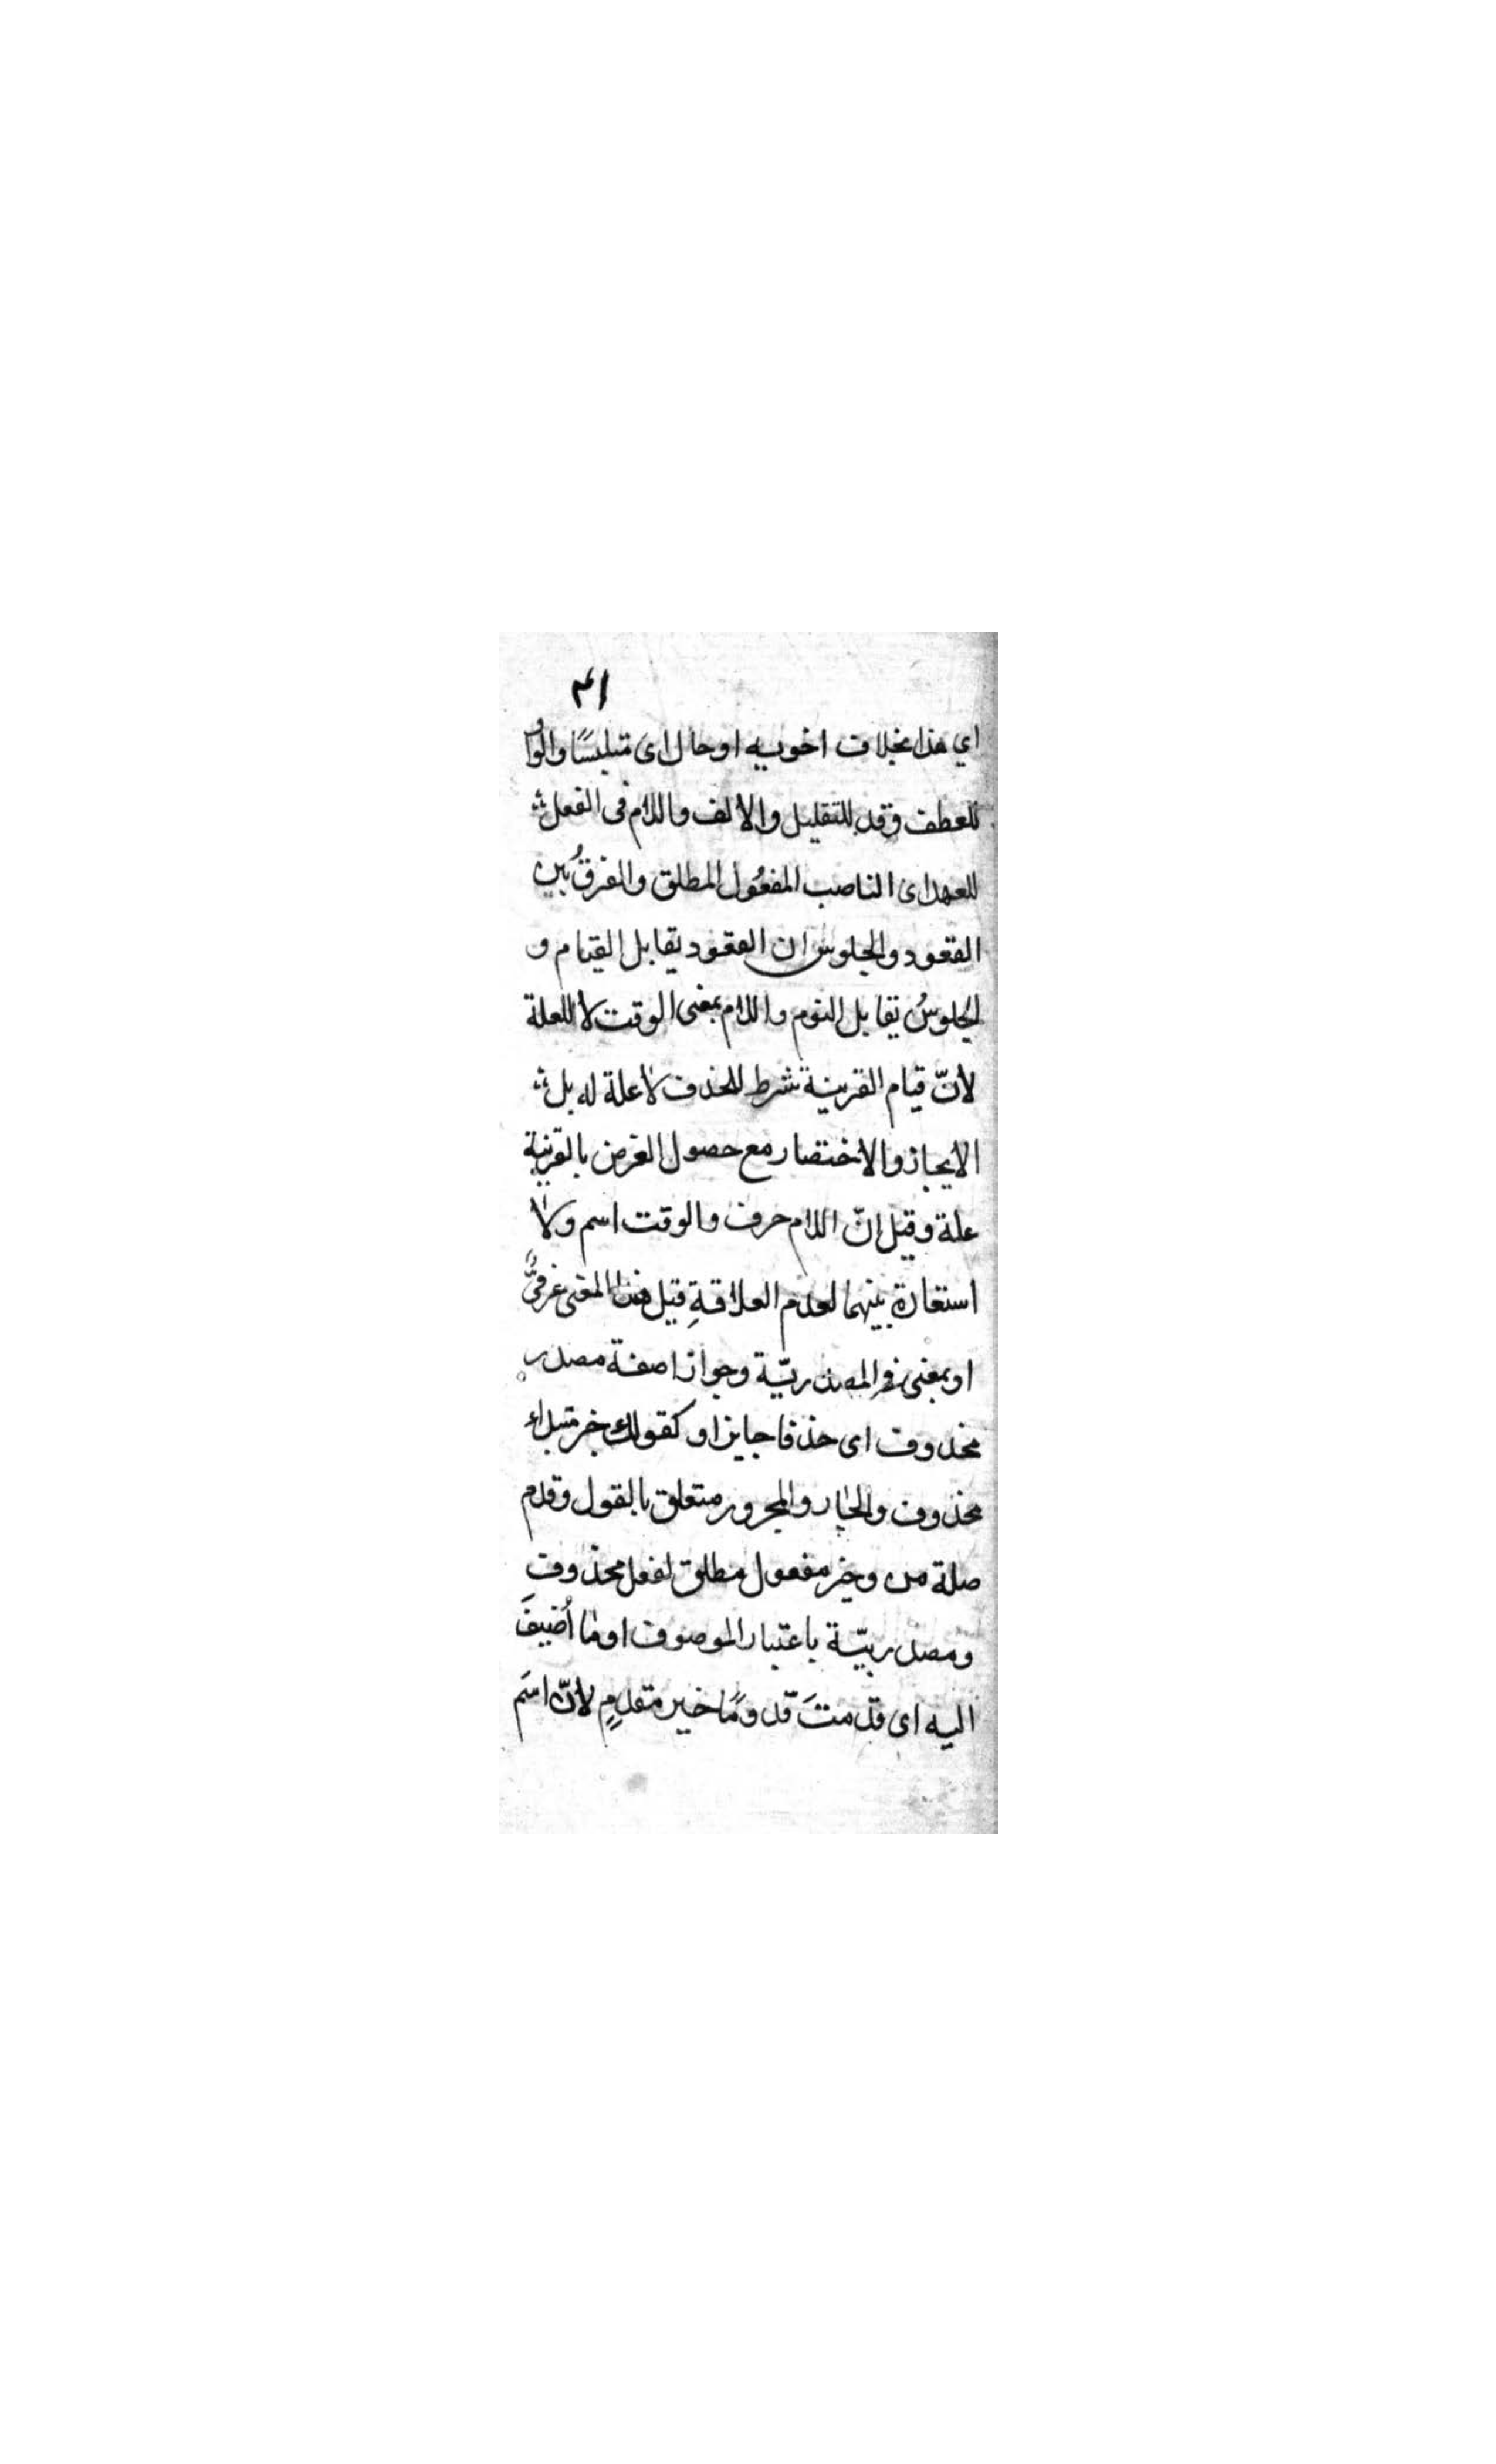 ٤١
اي هذا بخلاف اخويه او حال اى متلبسًا والواو
للعطف وقد للتقليل والالف واللام فى الفعل
للعهد اى الناصب المفعُول المطلق والفرقُ بين
القعود والجلوس ان القعود يقابل القيام و
الجلوسُ يقابل النوم واللام بمعنى الوقت لا للعلة
لانّ قيام القرينة شرط للحذف لا علة له بل
الايجاز والاختصار مع حصول الغرض بالقرينة
علة وقيل انّ اللام حرف والوقت اسم ولا
استعارة بينهما لعدم العلاقةِ قيل هذا المعنى عرفىٌّ
او بمعنى فى المصدريّة وجوازا صفة مصدر
محذوف اى حذفا جايزا وكقولك خبر مبتداء
محذوف والجار والمجرور متعلق بالقول وقدم
صلة من وخير مفعول مطلق لفعل محذوف
ومصدريّة باعتبار الموصوف او ما اُضيفَ
اليه اى قدمتَ قدومًا خير مقدمٍ لانّه اسَم